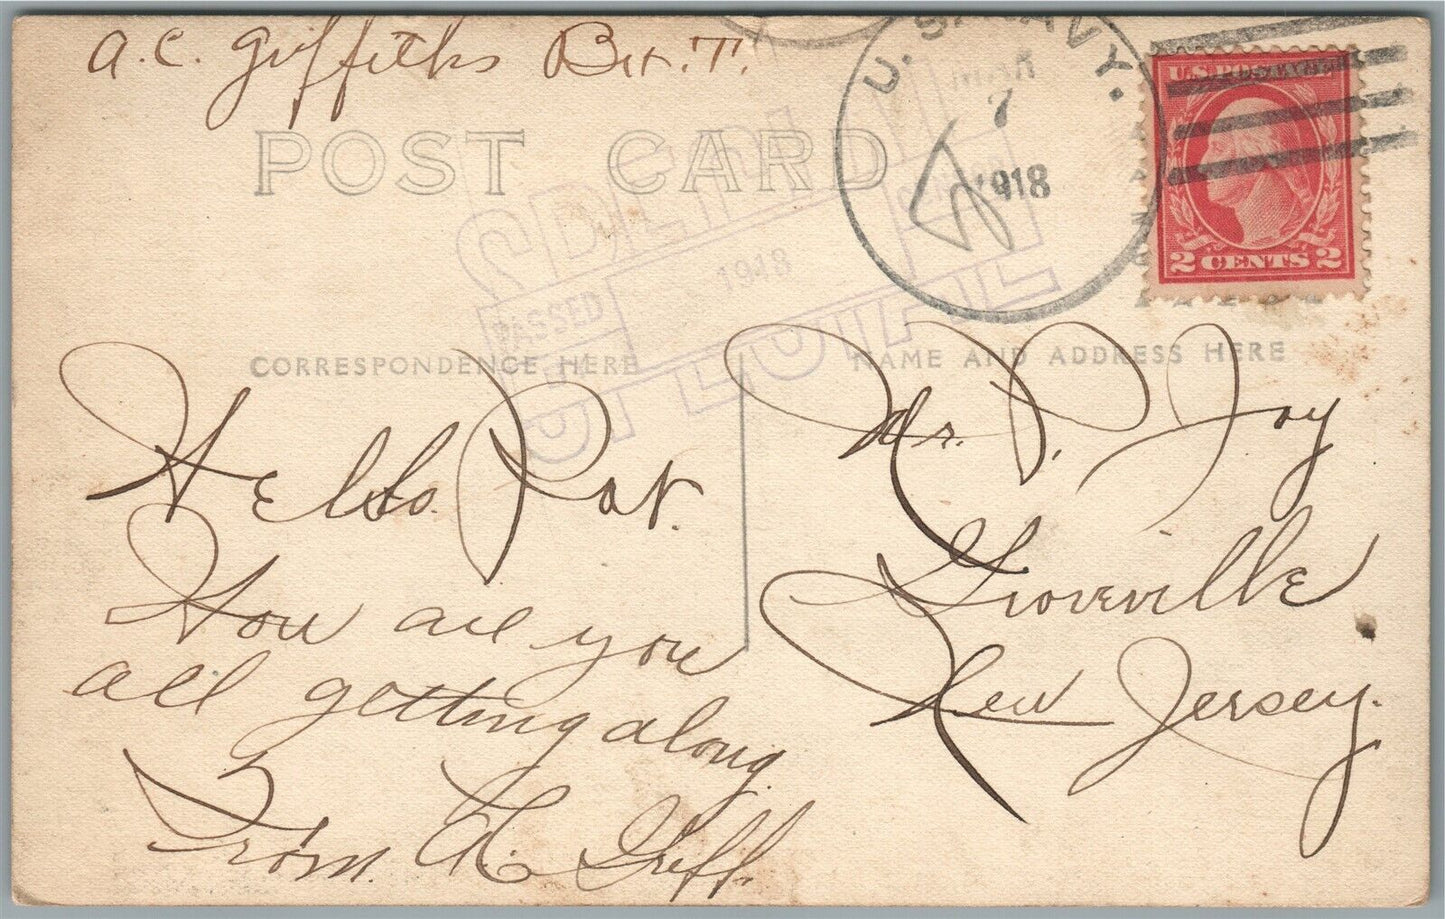 A. C. Griffiths Bir. T.
POST CARD
U.S. NAVY.
MAR
7
1918
U.S. POSTAGE
2 CENTS 2
PASSED
1918
CORRESPONDENCE HERE
NAME AND ADDRESS HERE
Hello Pat.
How are you
all getting along
From. A. Griff.
Mr. P. Joy
Groveville
New Jersey.